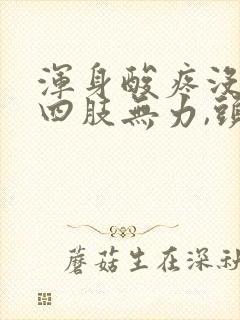 渾身酸疼沒
四肢無力,頭
蘑菇生在深秋